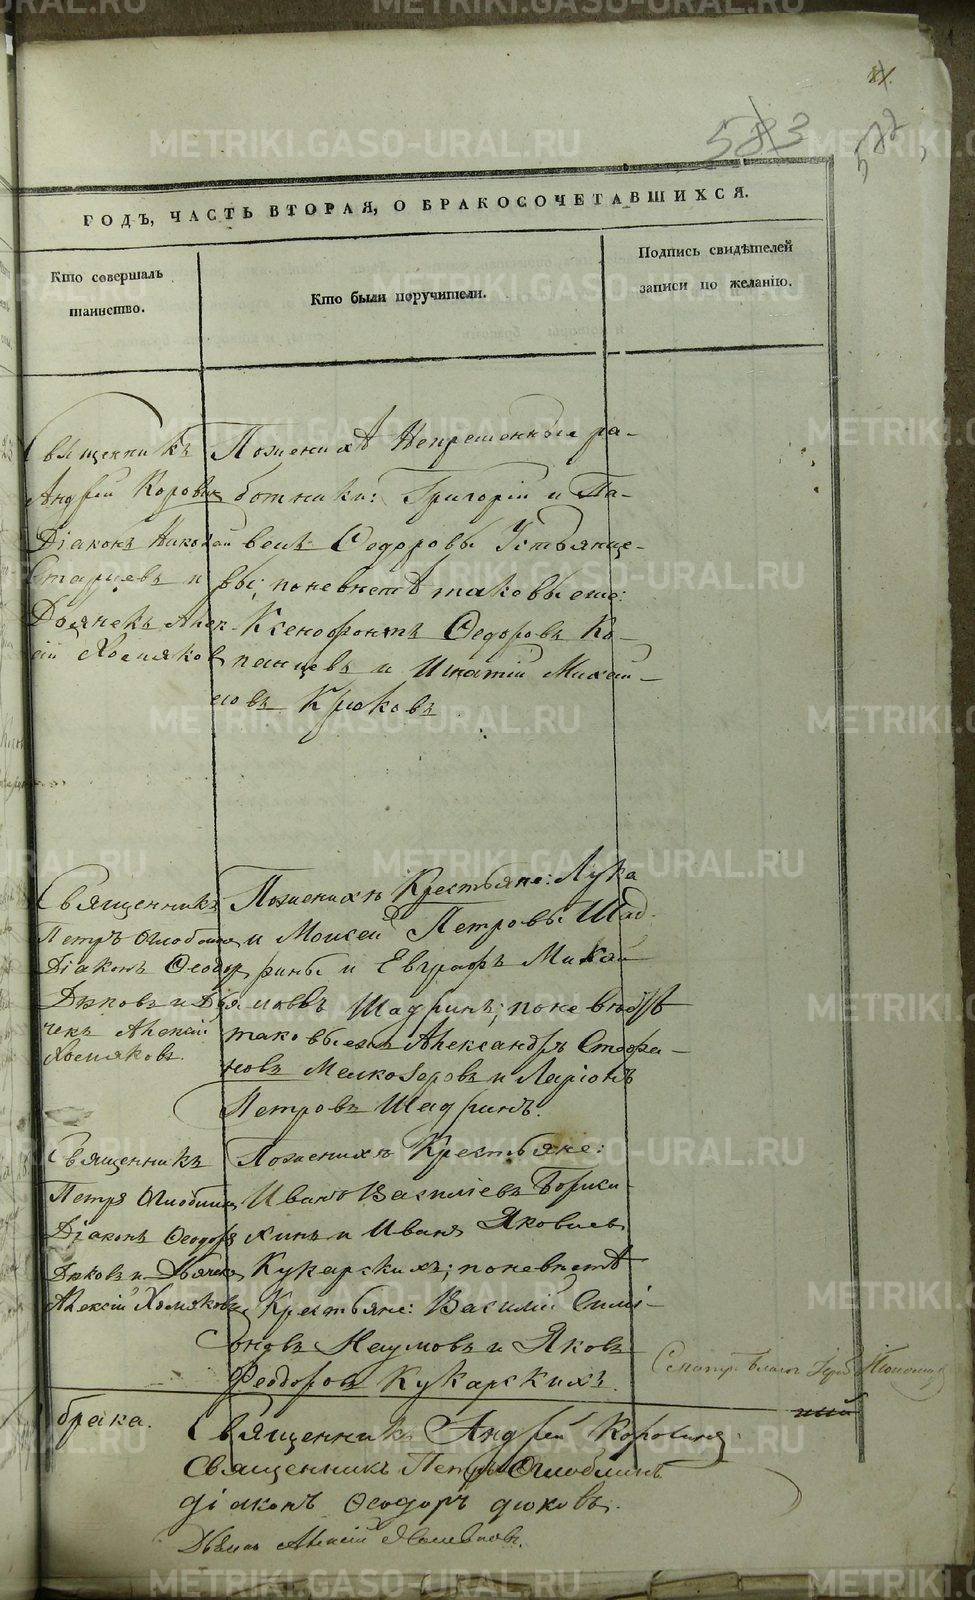 METRIKI.GASO-URAL.RU
81.
583
572
ГОДЪ, ЧАСТЬ ВТОРАЯ, О БРАКОСОЧЕТАВШИХСЯ.
Кто совершалъ таинство.
Кто были поручители.
Подпись свидѣтелей записи по желанію.
Священникъ
Андрей Коровин
Діаконъ Николай
Старцевъ и
Дьячекъ Алек-
сій Хомяков
По женихѣ Непременные ра-
ботники: Григорій и Па-
велъ Ѳедоровы Устьянце-
вы; по невѣстѣ таковые же:
Ксенофонтъ Ѳедоровъ Ко-
панцевъ и Игнатій Михай-
ловъ Крюковъ
Священникъ
Петръ Оглоблин
Діаконъ Ѳеодор
Дюковъ и Дья
чекъ Алексій
Хомяковъ.
По женихѣ Крестьяне: Лука
и Моисей Петровы Шад-
рины и Евграфъ Михай
ловъ Шадринъ; по невѣстѣ
таковые же Александръ Стефа-
новъ Мелкозеровъ и Ларіонъ
Петровъ Шадринъ.
Священникъ
Петръ Оглоблин
Діаконъ Ѳеодоръ
Дюковъ и Дьячекъ
Алексій Хомяковъ
По женихѣ Крестьяне:
Иванъ Василіевъ Борис-
кинъ и Иванъ Яковлев
Кукарскихъ; по невѣстѣ
Крестьяне: Василій Симі-
оновъ Наумовъ и Яковъ
Феодоровъ Кукарскихъ.
брака.
Священникъ Андрей Коровинъ
Священникъ Петръ Оглоблинъ
діаконъ Ѳеодоръ дюковъ.
Дьячекъ Алексій Хомяковъ.